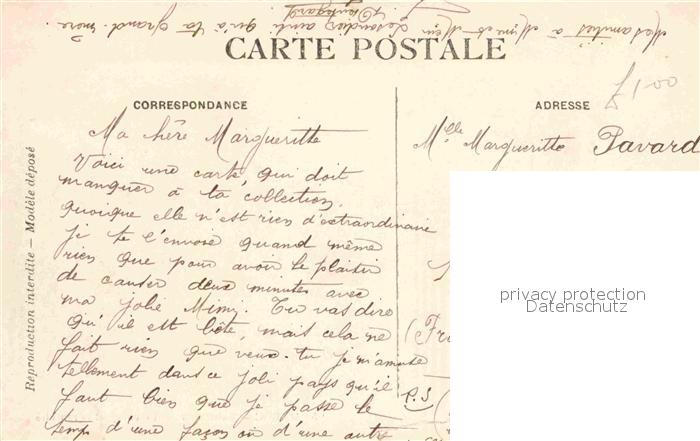 Mes amitiés à Mme et Mlle
ainsi qu'à ta Grand-mère.
CARTE POSTALE
£1-00
CORRESPONDANCE
ADRESSE
Reproduction interdite — Modèle déposé
Ma hère Margueritte
Voici une carte, qui doit
manquer à ta collection.
Quoique elle n'est rien d'extraordinaire
je te l'envoie quand même
rien que pour avoir le plaisir
de causer deux minutes avec
ma jolie Mimi. Tu vas dire
qu'il est bête, mais cela ne
fait rien que veux-tu je m'amuse
tellement dans ce joli pays qu'il
faut bien que je passe le
temps d'une façon ou d'une autre
Mlle Margueritte Pavard
(Fr
P.S
privacy protection
Datenschutz